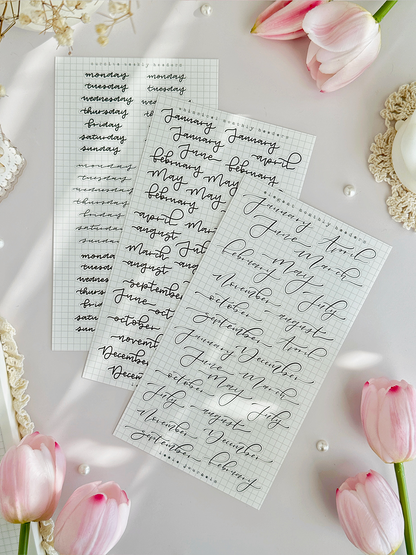 weekly headers
monday monday
tuesday tuesday
wednesday
thursday
friday
saturday
sunday
monday
tuesday
wednesday
thursday
friday
saturday
sunday
monday
wednes
thurs
monthly headers
January January
January January
June february april
february
May May
february
April
august July
March
august
september
June
october
December
monthly headers
January April
June March
february May July
November august
october
September April
January December
June March
october May July
July august
November December
September february